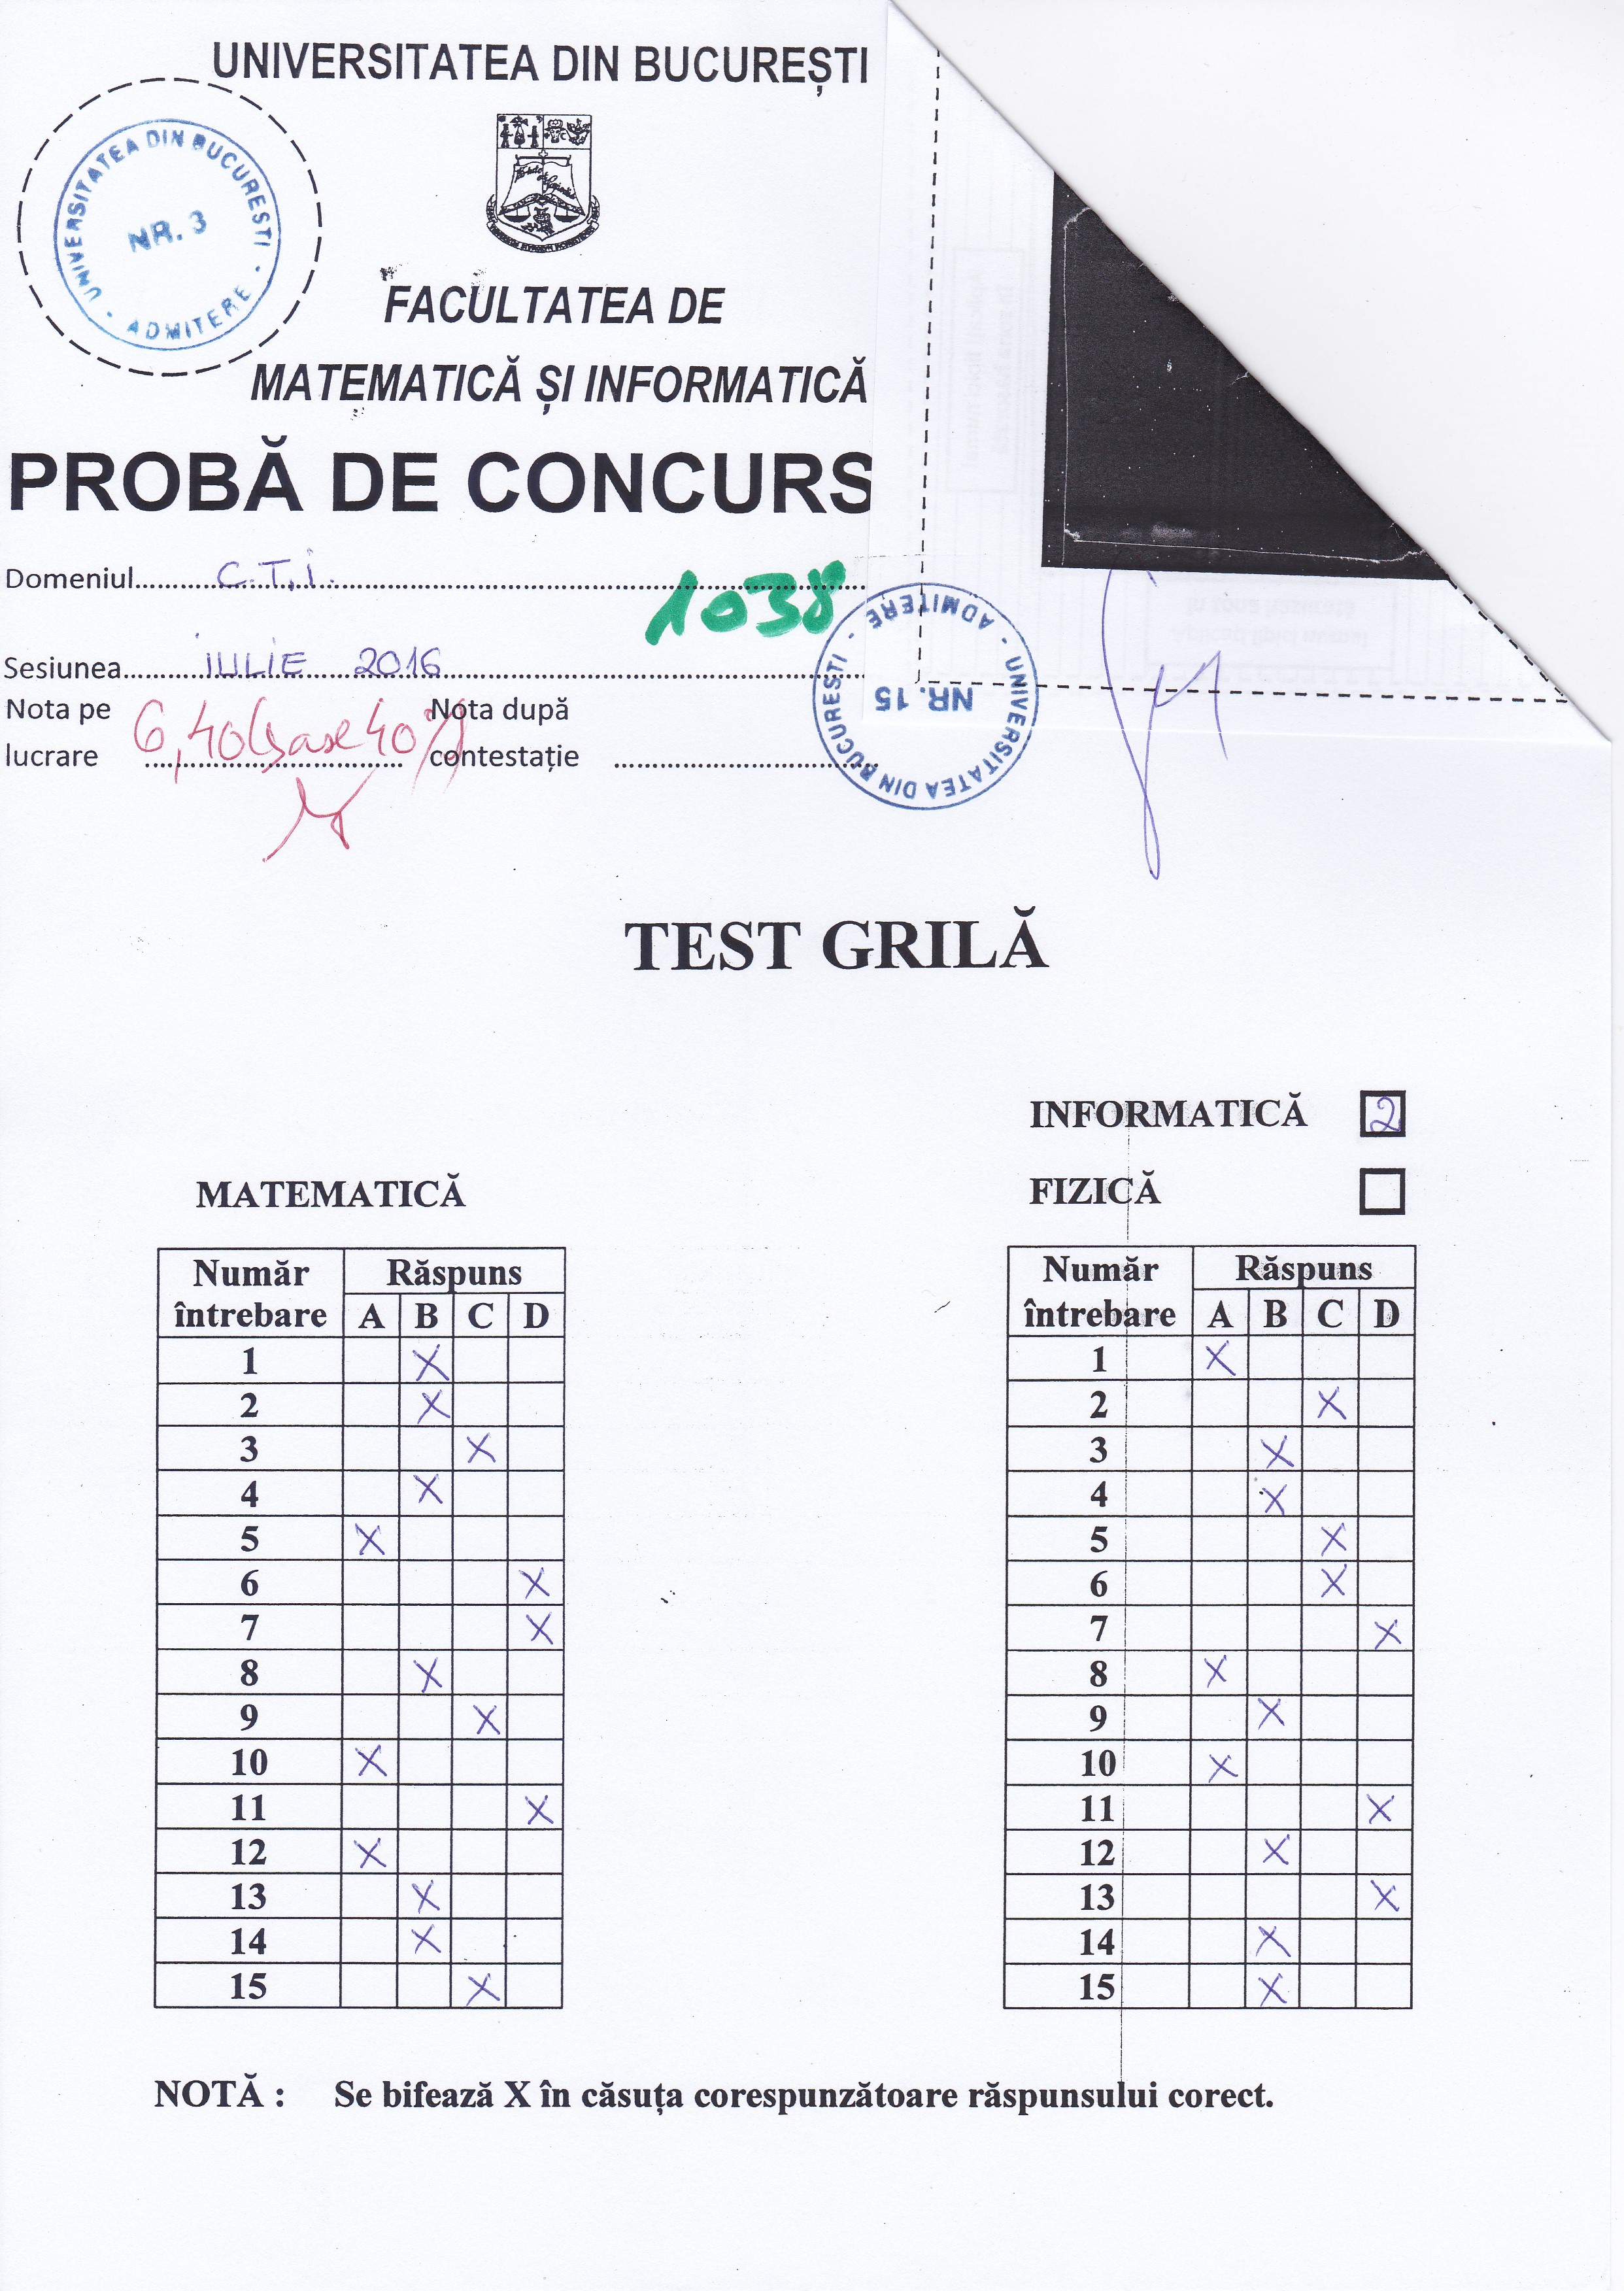 UNIVERSITATEA DIN BUCUREȘTI
UNIVERSITATEA DIN BUCURESTI - ADMITERE -
NR. 3
FACULTATEA DE
MATEMATICĂ ȘI INFORMATICĂ
PROBĂ DE CONCURS
Domeniul C.T.i.
1038
Sesiunea iULiE 2016
Nota pe lucrare 6,40 (șase 40%)
Nota după contestație
UNIVERSITATEA DIN BUCURESTI - ADMITERE -
NR. 15
TEST GRILĂ
INFORMATICĂ 2
FIZICĂ
MATEMATICĂ
Număr întrebare Răspuns
A B C D
1 X
2 X
3 X
4 X
5 X
6 X
7 X
8 X
9 X
10 X
11 X
12 X
13 X
14 X
15 X
Număr întrebare Răspuns
A B C D
1 X
2 X
3 X
4 X
5 X
6 X
7 X
8 X
9 X
10 X
11 X
12 X
13 X
14 X
15 X
NOTĂ : Se bifează X în căsuța corespunzătoare răspunsului corect.